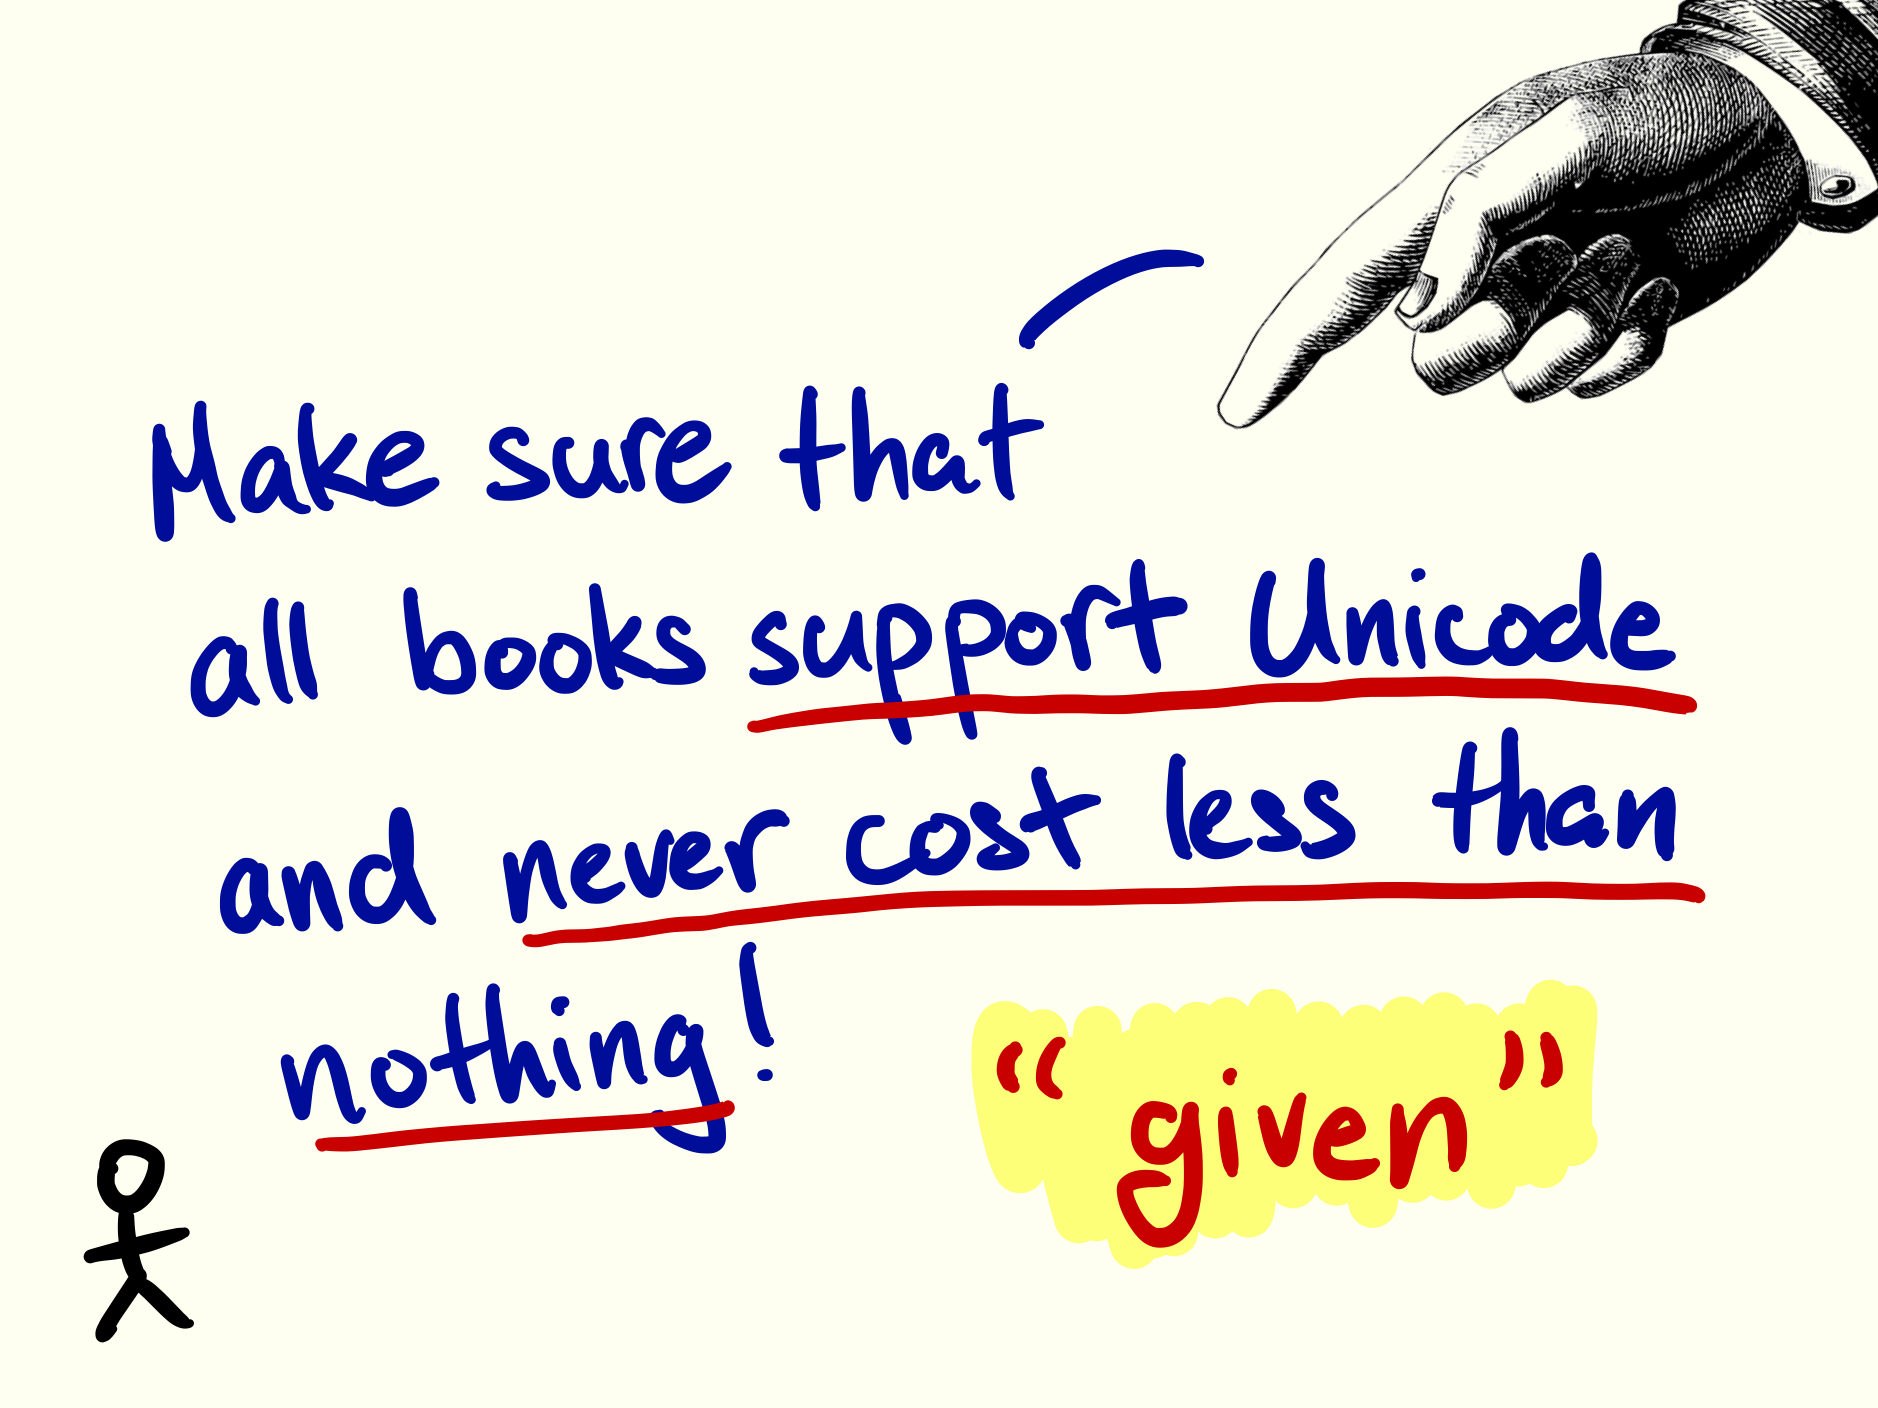 Make sure that
all books support Unicode
and never cost less than
nothing!
“given”